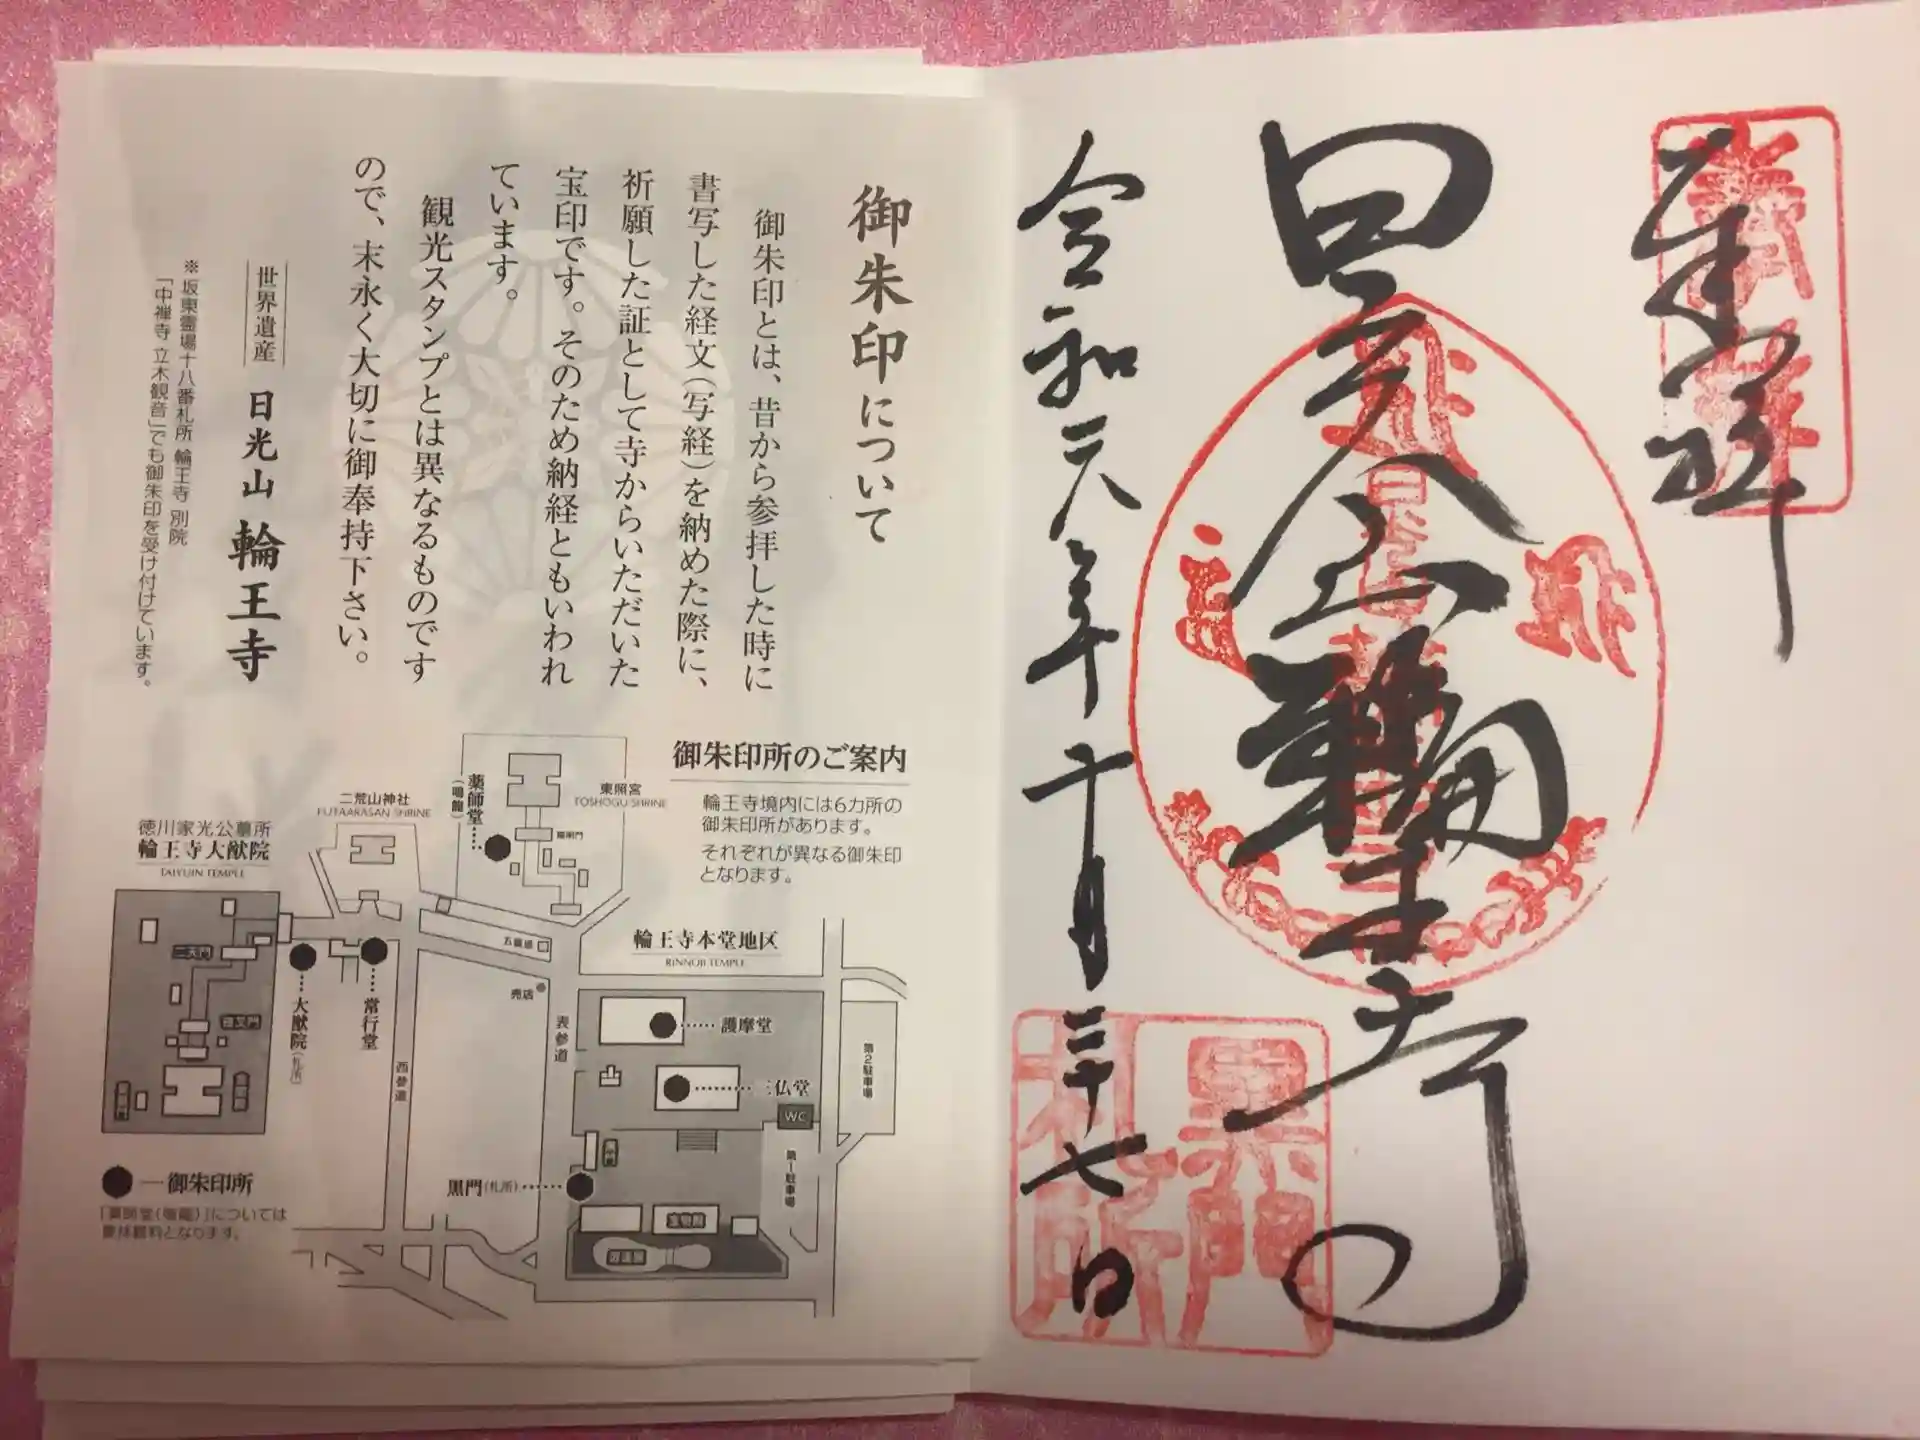 奉拝
日光山輪王寺
令和六年十月二十七日
奉拝
黒門
札所
御朱印について
御朱印とは、昔から参拝した時に
書写した経文(写経)を納めた際に、
祈願した証として寺からいただいた
宝印です。そのため納経ともいわれ
ています。
観光スタンプとは異なるものです
ので、末永く大切に御奉持下さい。
世界遺産 日光山 輪王寺
※坂東霊場十八番札所 輪王寺 別院
「中禅寺 立木観音」でも御朱印を受け付けています。
御朱印所のご案内
輪王寺境内には6カ所の
御朱印所があります。
それぞれが異なる御朱印
となります。
東照宮
TOSHOGU SHRINE
薬師堂
(鳴龍)
陽明門
二荒山神社
FUTAARASAN SHRINE
徳川家光公墓所
輪王寺大猷院
TAIYUIN TEMPLE
二天門
夜叉門
大猷院(札所)
常行堂
西参道
五重塔
売店
表参道
輪王寺本堂地区
RINNOJI TEMPLE
護摩堂
三仏堂
WC
第2駐車場
第1駐車場
黒門(札所)
宝物殿
逍遥園
●—御朱印所
「薬師堂(鳴龍)」については
要拝観料となります。